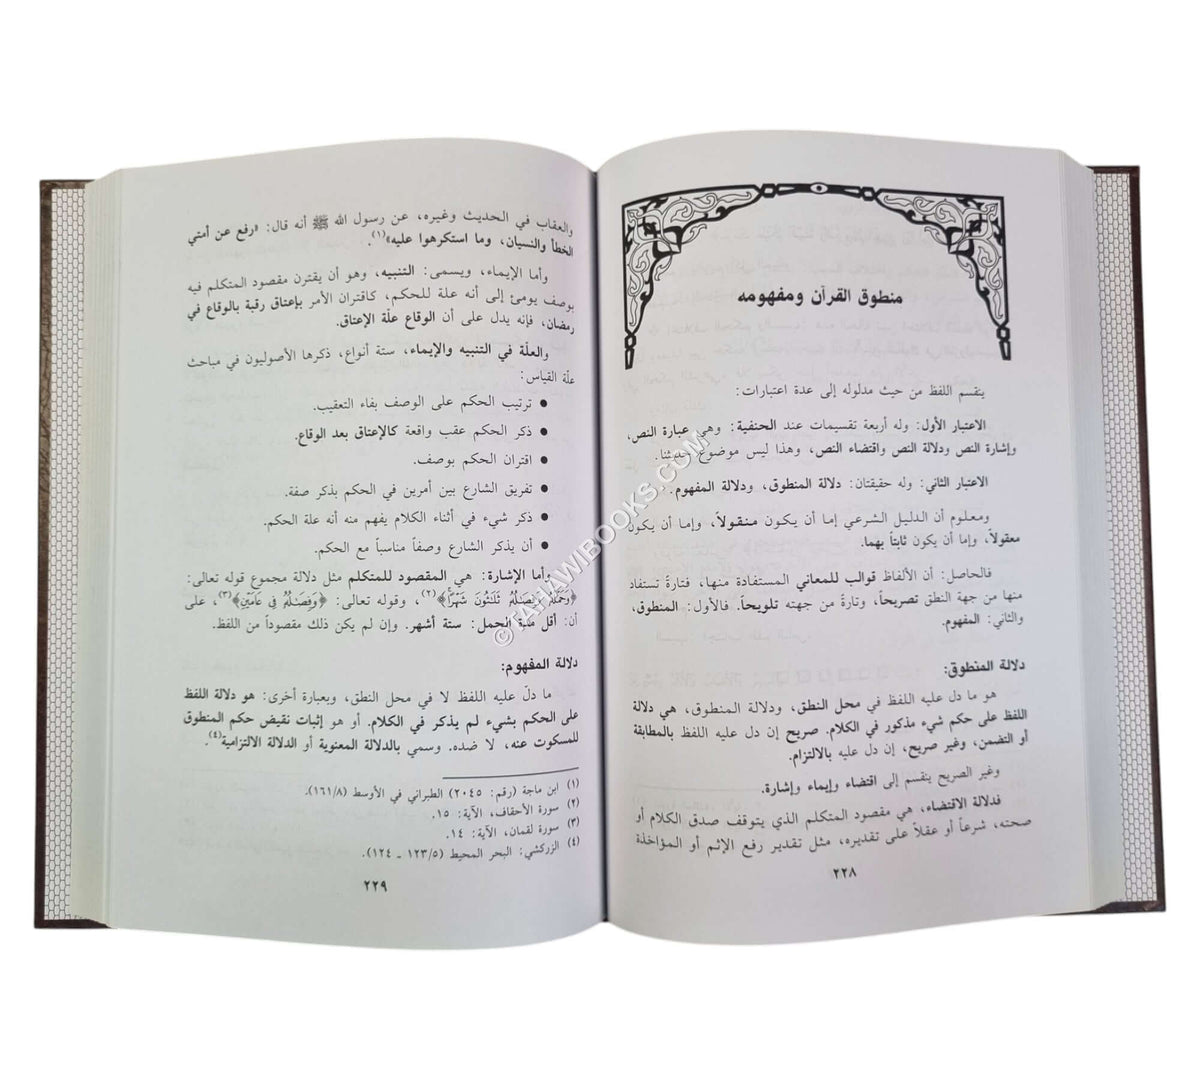 منطوق القرآن ومفهومه
ينقسم اللفظ من حيث مدلوله إلى عدة اعتبارات:
الاعتبار الأول: وله أربعة تقسيمات عند الحنفية: وهي عبارة النص،
وإشارة النص ودلالة النص واقتضاء النص، وهذا ليس موضوع حديثنا.
الاعتبار الثاني: وله حقيقتان: دلالة المنطوق، ودلالة المفهوم.
ومعلوم أن الدليل الشرعي إما أن يكون منقولاً، وإما أن يكون
معقولاً، وإما أن يكون ثابتاً بهما.
فالحاصل: أن الألفاظ قوالب للمعاني المستفادة منها، فتارةً تستفاد
منها من جهة النطق تصريحاً، وتارةً من جهته تلويحاً. فالأول: المنطوق،
والثاني: المفهوم.
دلالة المنطوق:
هو ما دل عليه اللفظ في محل النطق، ودلالة المنطوق، هي دلالة
اللفظ على حكم شيء مذكور في الكلام. صريح إن دل عليه اللفظ بالمطابقة
أو التضمن، وغير صريح، إن دل عليه بالالتزام.
وغير الصريح ينقسم إلى اقتضاء وإيماء وإشارة.
فدلالة الاقتضاء، هي مقصود المتكلم الذي يتوقف صدق الكلام أو
صحته، شرعاً أو عقلاً على تقديره، مثل تقدير رفع الإثم أو المؤاخذة
٢٢٨
والعقاب في الحديث وغيره، عن رسول الله ﷺ أنه قال: «رفع عن أمتي
الخطأ والنسيان، وما استكرهوا عليه»(١).
وأما الإيماء، ويسمى: التنبيه، وهو أن يقترن مقصود المتكلم فيه
بوصف يومئ إلى أنه علة للحكم، كاقتران الأمر بإعتاق رقبة بالوقاع في
رمضان، فإنه يدل على أن الوقاع علّة الإعتاق.
والعلّة في التنبيه والإيماء، ستة أنواع، ذكرها الأصوليون في مباحث
علّة القياس:
● ترتيب الحكم على الوصف بفاء التعقيب.
● ذكر الحكم عقب واقعة كالإعتاق بعد الوقاع.
● اقتران الحكم بوصف.
● تفريق الشارع بين أمرين في الحكم بذكر صفة.
● ذكر شيء في أثناء الكلام يفهم منه أنه علة الحكم.
● أن يذكر الشارع وصفاً مناسباً مع الحكم.
وأما الإشارة: هي المقصود للمتكلم مثل دلالة مجموع قوله تعالى:
﴿وَحَمْلُهُ وَفِصَٰلُهُ ثَلَٰثُونَ شَهْرًا﴾(٢)، وقوله تعالى: ﴿وَفِصَٰلُهُ فِى عَامَيْنِ﴾(٣)، على
أن: أقل مدة الحمل: ستة أشهر. وإن لم يكن ذلك مقصوداً من اللفظ.
دلالة المفهوم:
ما دلّ عليه اللفظ لا في محل النطق، وبعبارة أخرى: هو دلالة اللفظ
على الحكم بشيء لم يذكر في الكلام. أو هو إثبات نقيض حكم المنطوق
للمسكوت عنه، لا ضده. وسمي بالدلالة المعنوية أو الدلالة الالتزامية(٤).
(١) ابن ماجة (رقم: ٢٠٤٥) الطبراني في الأوسط (١٦١/٨).
(٢) سورة الأحقاف، الآية: ١٥.
(٣) سورة لقمان، الآية: ١٤.
(٤) الزركشي: البحر المحيط (١٢٣/٥ ـ ١٢٤).
٢٢٩
©TAHAWIBOOKS.COM